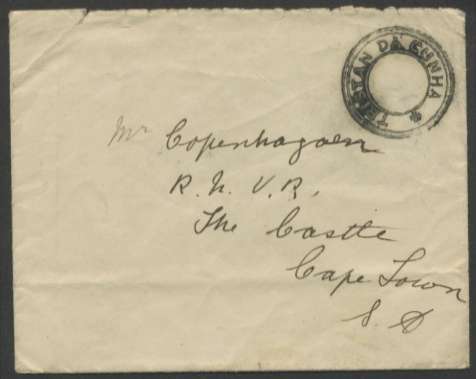 TRISTAN DA CUNHA
Mr Copenhagen
R. N. V. R.
The Castle
Cape Town
S. A